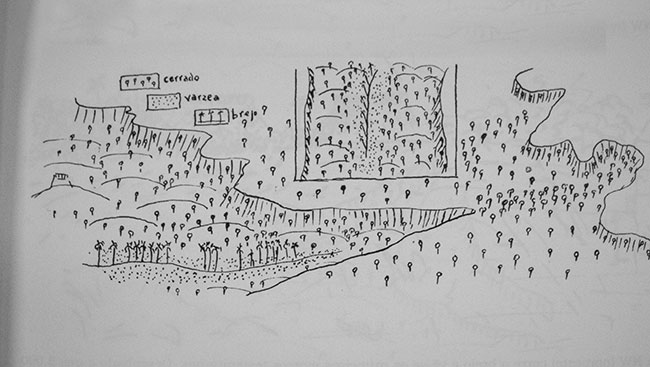 cerrado
varzea
brejo